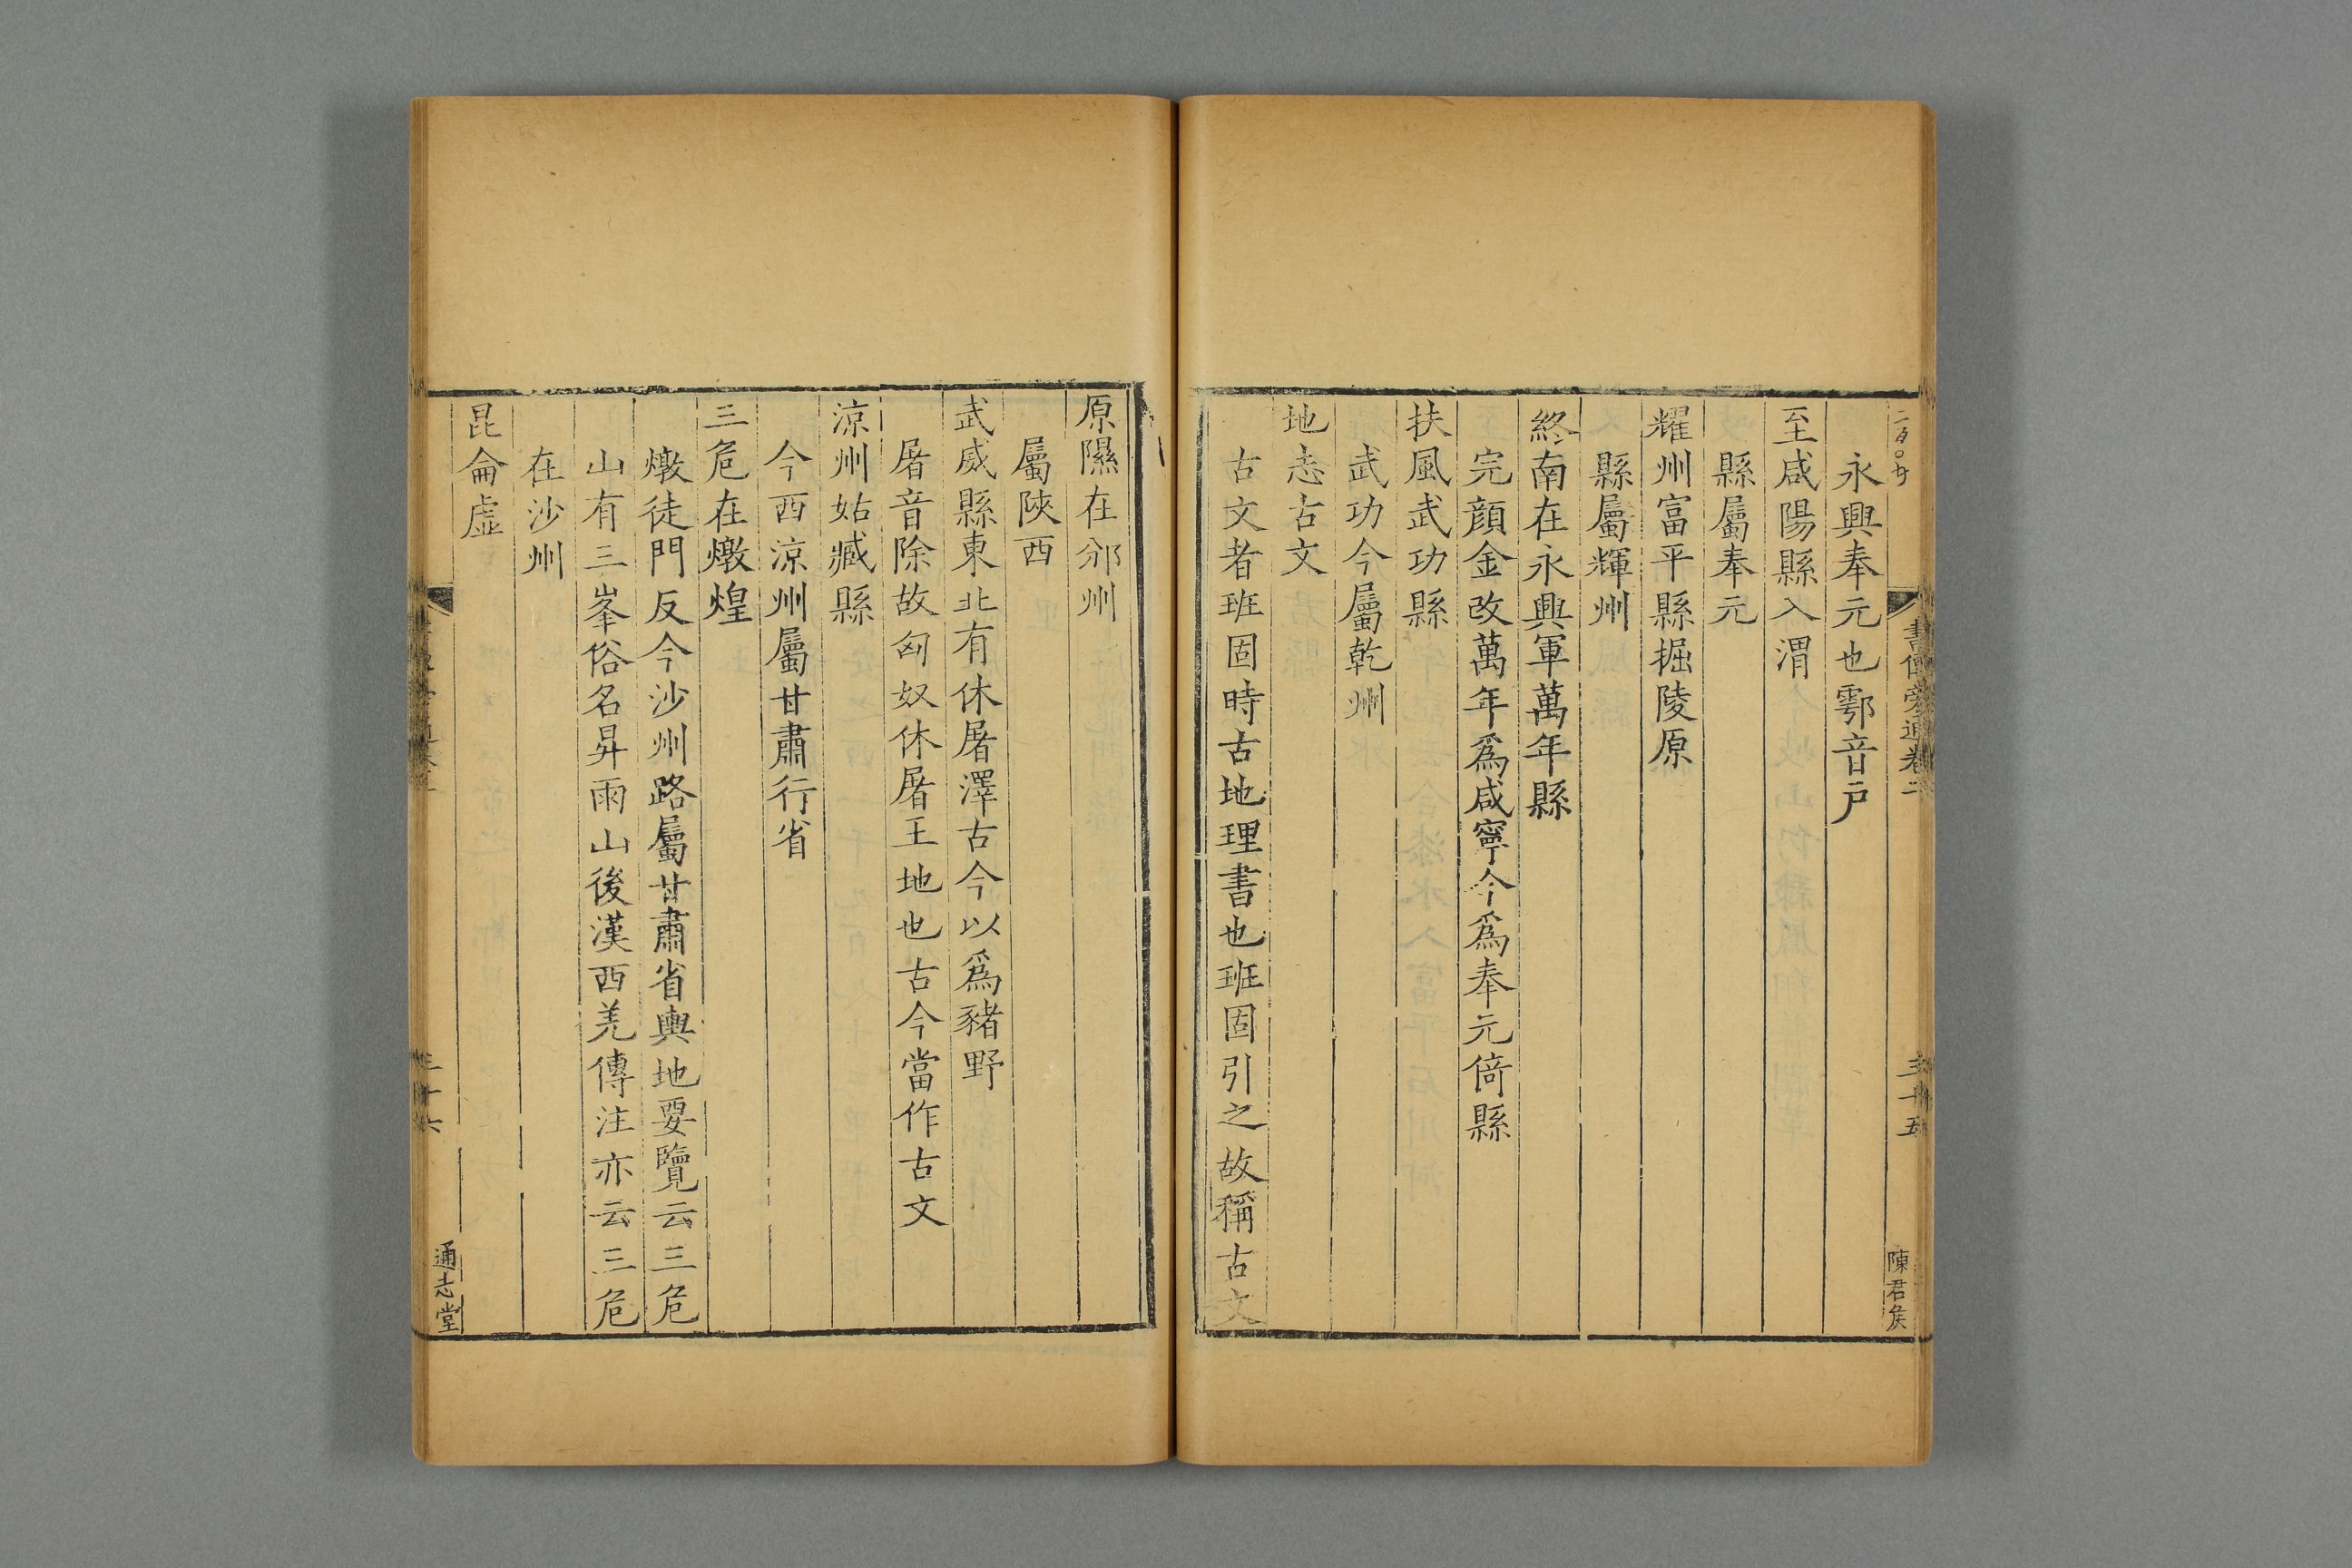 書傳旁通卷二
三十五
陳君矦
永興奉元也鄠音戸
至咸陽縣入渭
縣屬奉元
耀州富平縣掘陵原
縣屬輝州
終南在永興軍萬年縣
完顔金改萬年爲咸寧今爲奉元倚縣
扶風武功縣
武功今屬乾州
地志古文
古文者班固時古地理書也班固引之故稱古文
原隰在邠州
屬陝西
武威縣東北有休屠澤古今以爲豬野
屠音除故匈奴休屠王地也古今當作古文
涼州姑臧縣
今西涼州屬甘肅行省
三危在燉煌
燉徒門反今沙州路屬甘肅省輿地要覽云三危
山有三峯俗名昇雨山後漢西羌傳注亦云三危
在沙州
昆侖虛
通志堂